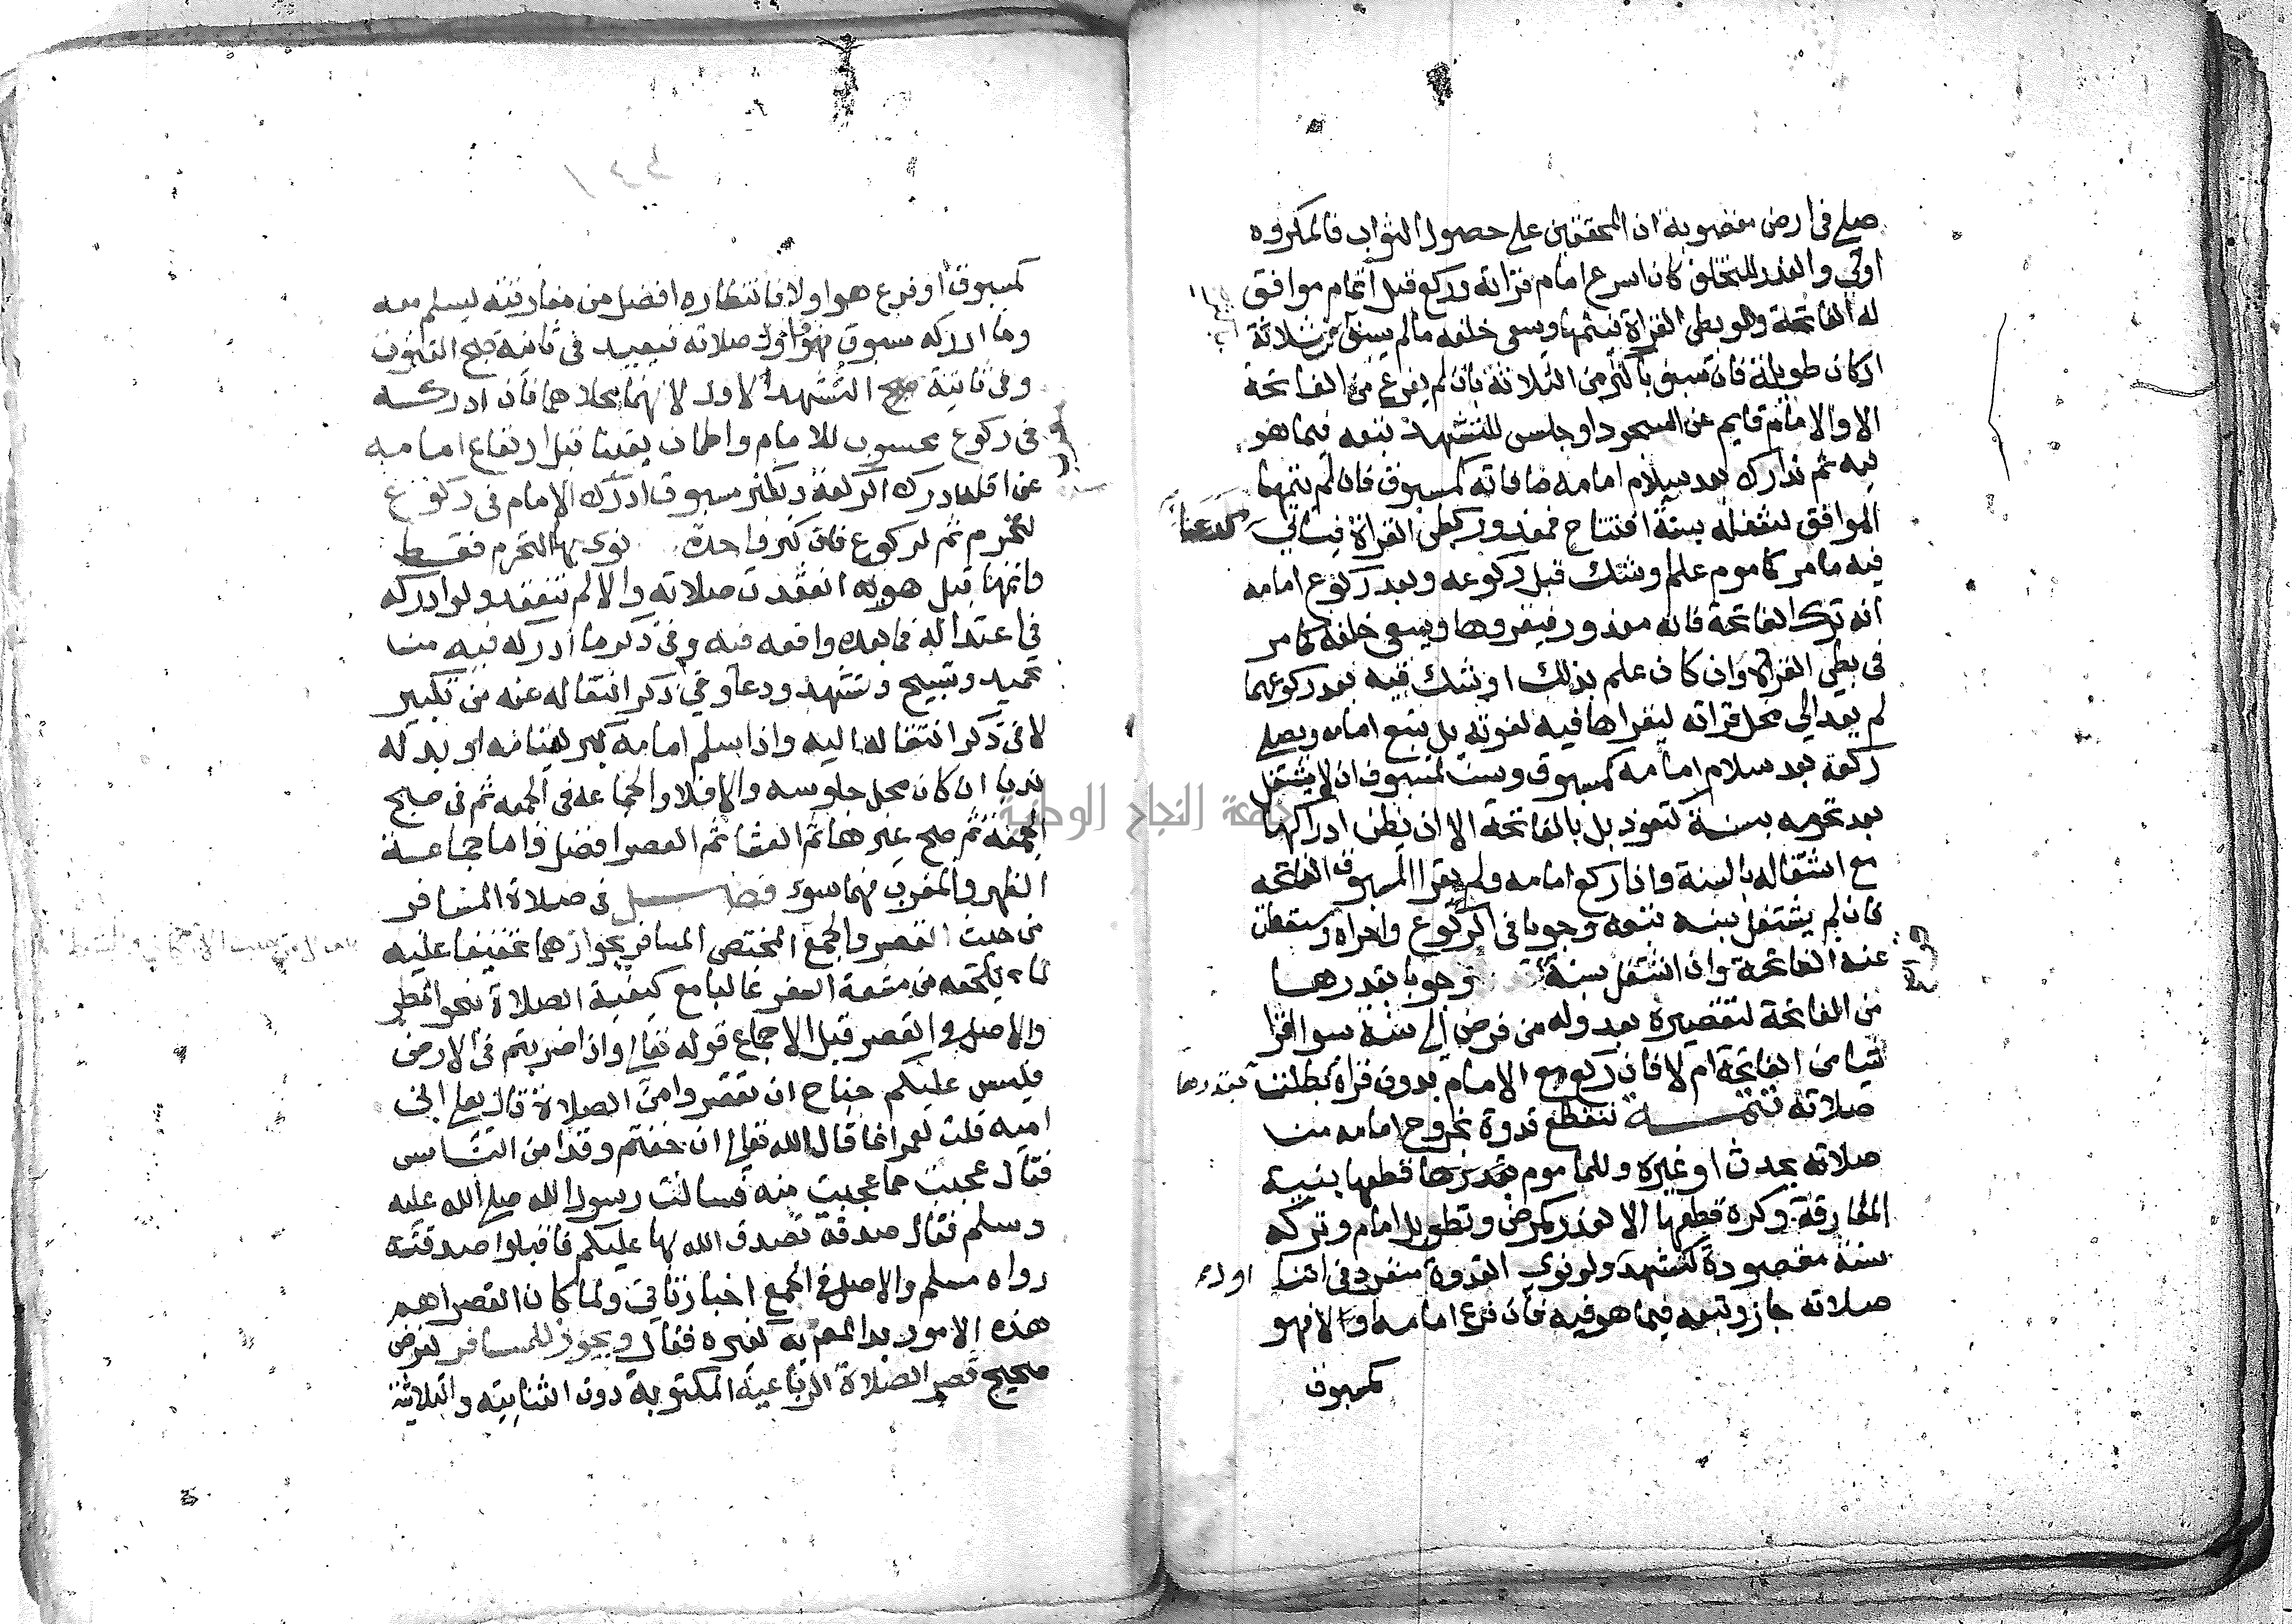 صلي في ارض مغضوبة ان المحققين علي حصول الثواب فالمكروه
اولي والعذر للتخلف كان اسرع امام قراته وركع قبل اتمام موافق
له الفاتحة وهو بطي القراة فيتمها ويسعي خلفه مالم يسبق بثلاثة
اركان طويلة فان سبق باكثر من الثلاثة بان لم يفرغ من الفاتحة
الا والامام قايم عن السجود او جلس للتشهد تبعه فيما هو
فيه ثم تدارك بعد سلام امامه ما فاته كمسبوق فان لم يتمها
الموافق لشغله بسنة افتتاح فمعذور كبطي القراة فياتي
فيه ما مر كماموم علم او شك قبل ركوعه وبعد ركوع امامه
انه ترك الفاتحة فانه معذور فيقروها ويسعي خلفه كما مر
في بطي القراة وان كان علم بذلك او شك فيه بعد ركوعهما
لم يعد الي محل قراته ليقراها فيه لفوته بل يتبع امامه ويصلي
ركعة بعد سلام امامه كمسبوق وسن لمسبوق ان لا يشتغل
بعد تحرمه بسنة كتعوذ بل بالفاتحة الا ان يظن ادراكها
مع اشتغاله بالسنة واذا ركع امامه ولم يقرا المسبوق الفاتحه
فان لم يشتغل بسنه تبعه وجوبا في الركوع واجزاه وسقطت
عنه الفاتحة وان اشتغل بسنة وجوبا بقدرها
من الفاتحة لتقصيره بعدوله من فرض الي سنة سوا اقرا
شيا من الفاتحة ام لا فان ركع مع الامام بدون قراة بطلت
بقدرها
صلاته تتمــة تنقطع قدوة بخروج امامه من
صلاته بحدث او غيره وللماموم قطعها بنية
المفارقة وكره قطعها الا لعذر كمرض وتطويل امام وتركه
سنة مقصودة كتشهد ولو نوي القدوة منفرد في اثنا
اول
صلاته جاز وتبعه فيما هو فيه فان فرغ امامه اولا فهو
كمسبوق
كمسبوق او فرغ هو اولا فانتظاره افضل من مفارقته ليسلم معه
وما ادركه مسبوق فهو اول صلاته فيعيد في ثانية صبح القنوت
وفي ثانية التشهد الاول لانهما محلاهما فان ادركه
في ركوع محسوب للامام واطمان يقينا قبل ارتفاع امامه
عن اقله ادرك الركعة ويكبر مسبوق ادرك الامام في ركوع
لتحرم ثم لركوع فان كبر واحدة نوي بها التحرم فقط
واتمها قبل هويه انعقدت صلاته والا لم تنعقد ولو ادركه
في اعتداله فما بعده وافقه فيه وفي ذكر ما ادركه فيه من
تحميد وتسبيح وتشهد ودعا وفي ذكر انتقاله عنه من تكبير
لا في ذكر انتقاله اليه واذا سلم امامه كبر لقيامه او بدله
ندبا ان كان محل جلوسه والا فلا والجماعه في الجمعه ثم في صبح
الجمعة ثم صبح غيرها ثم العشا ثم العصر افضل واما جماعة
الظهر والمغرب فهما سوا فصــل في صلاة المسافر
من حيث القصر والجمع المختص المسافر بجوازهما تخفيفا عليه
لما يلحقه من مشقة السفر غالبا مع كيفية الصلاة بنحو المطر
والاصل في القصر قبل الاجماع قوله تعالي واذا ضربتم في الارض
فليس عليكم جناح ان تقصروا من الصلاة قال يعلي ابن
اميه قلت لعمر انما قال الله تعالي ان خفتم وقد امن الناس
فقال عجبت مما عجبت منه فسالت رسول الله صلي الله عليه
وسلم فقال صدقة تصدق الله بها عليكم فاقبلوا صدقته
رواه مسلم والاصل في الجمع اخبار تاتي ولما كان القصر اهم
هذه الامور بدا المص به كغيره فقال ويجوز للمسافر لغرض
صحيح قصر الصلاة الرباعية المكتوبة دون الثنايية والثلاثية
جامعة النجاح الوطنية